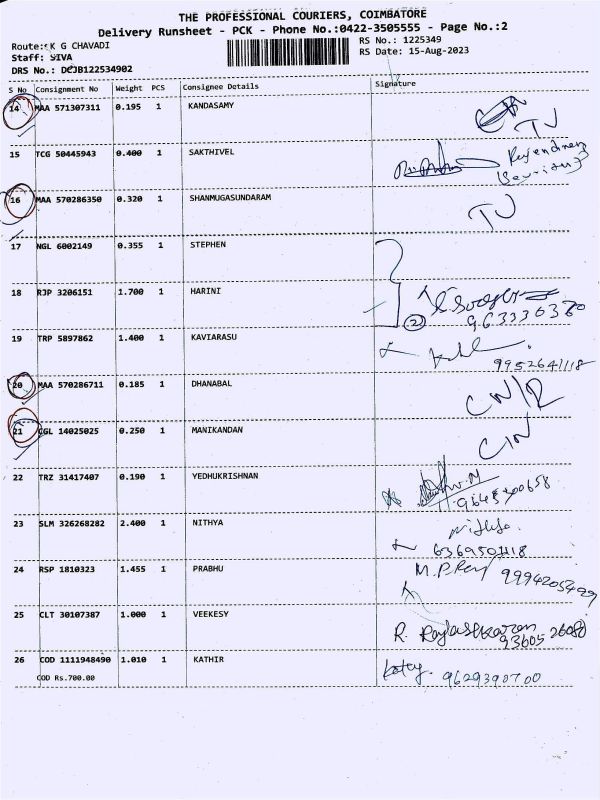 THE PROFESSIONAL COURIERS, COIMBATORE
Delivery Runsheet - PCK - Phone No.:0422-3505555 - Page No.:2
Route: K G CHAVADI
RS No.: 1225349
Staff: SIVA
RS Date: 15-Aug-2023
DRS No.: DCJB122534902
S No Consignment No Weight PCS Consignee Details Signature
14 MAA 571307311 0.195 1 KANDASAMY
TJ
15 TCG 50445943 0.400 1 SAKTHIVEL
16 MAA 570286350 0.320 1 SHANMUGASUNDARAM
TJ
17 NGL 6002149 0.355 1 STEPHEN
18 RJP 3206151 1.700 1 HARINI
2
19 TRP 5897862 1.400 1 KAVIARASU
9952641118
20 MAA 570286711 0.185 1 DHANABAL
21 CGL 14025025 0.250 1 MANIKANDAN
22 TRZ 31417407 0.190 1 YEDHUKRISHNAN
23 SLM 326268282 2.400 1 NITHYA
6369501118
24 RSP 1810323 1.455 1 PRABHU
9994205499
25 CLT 30107387 1.000 1 VEEKESY
R. Rajasekaran
93605 26080
26 COD 1111948490 1.010 1 KATHIR
9629390700
COD Rs.700.00